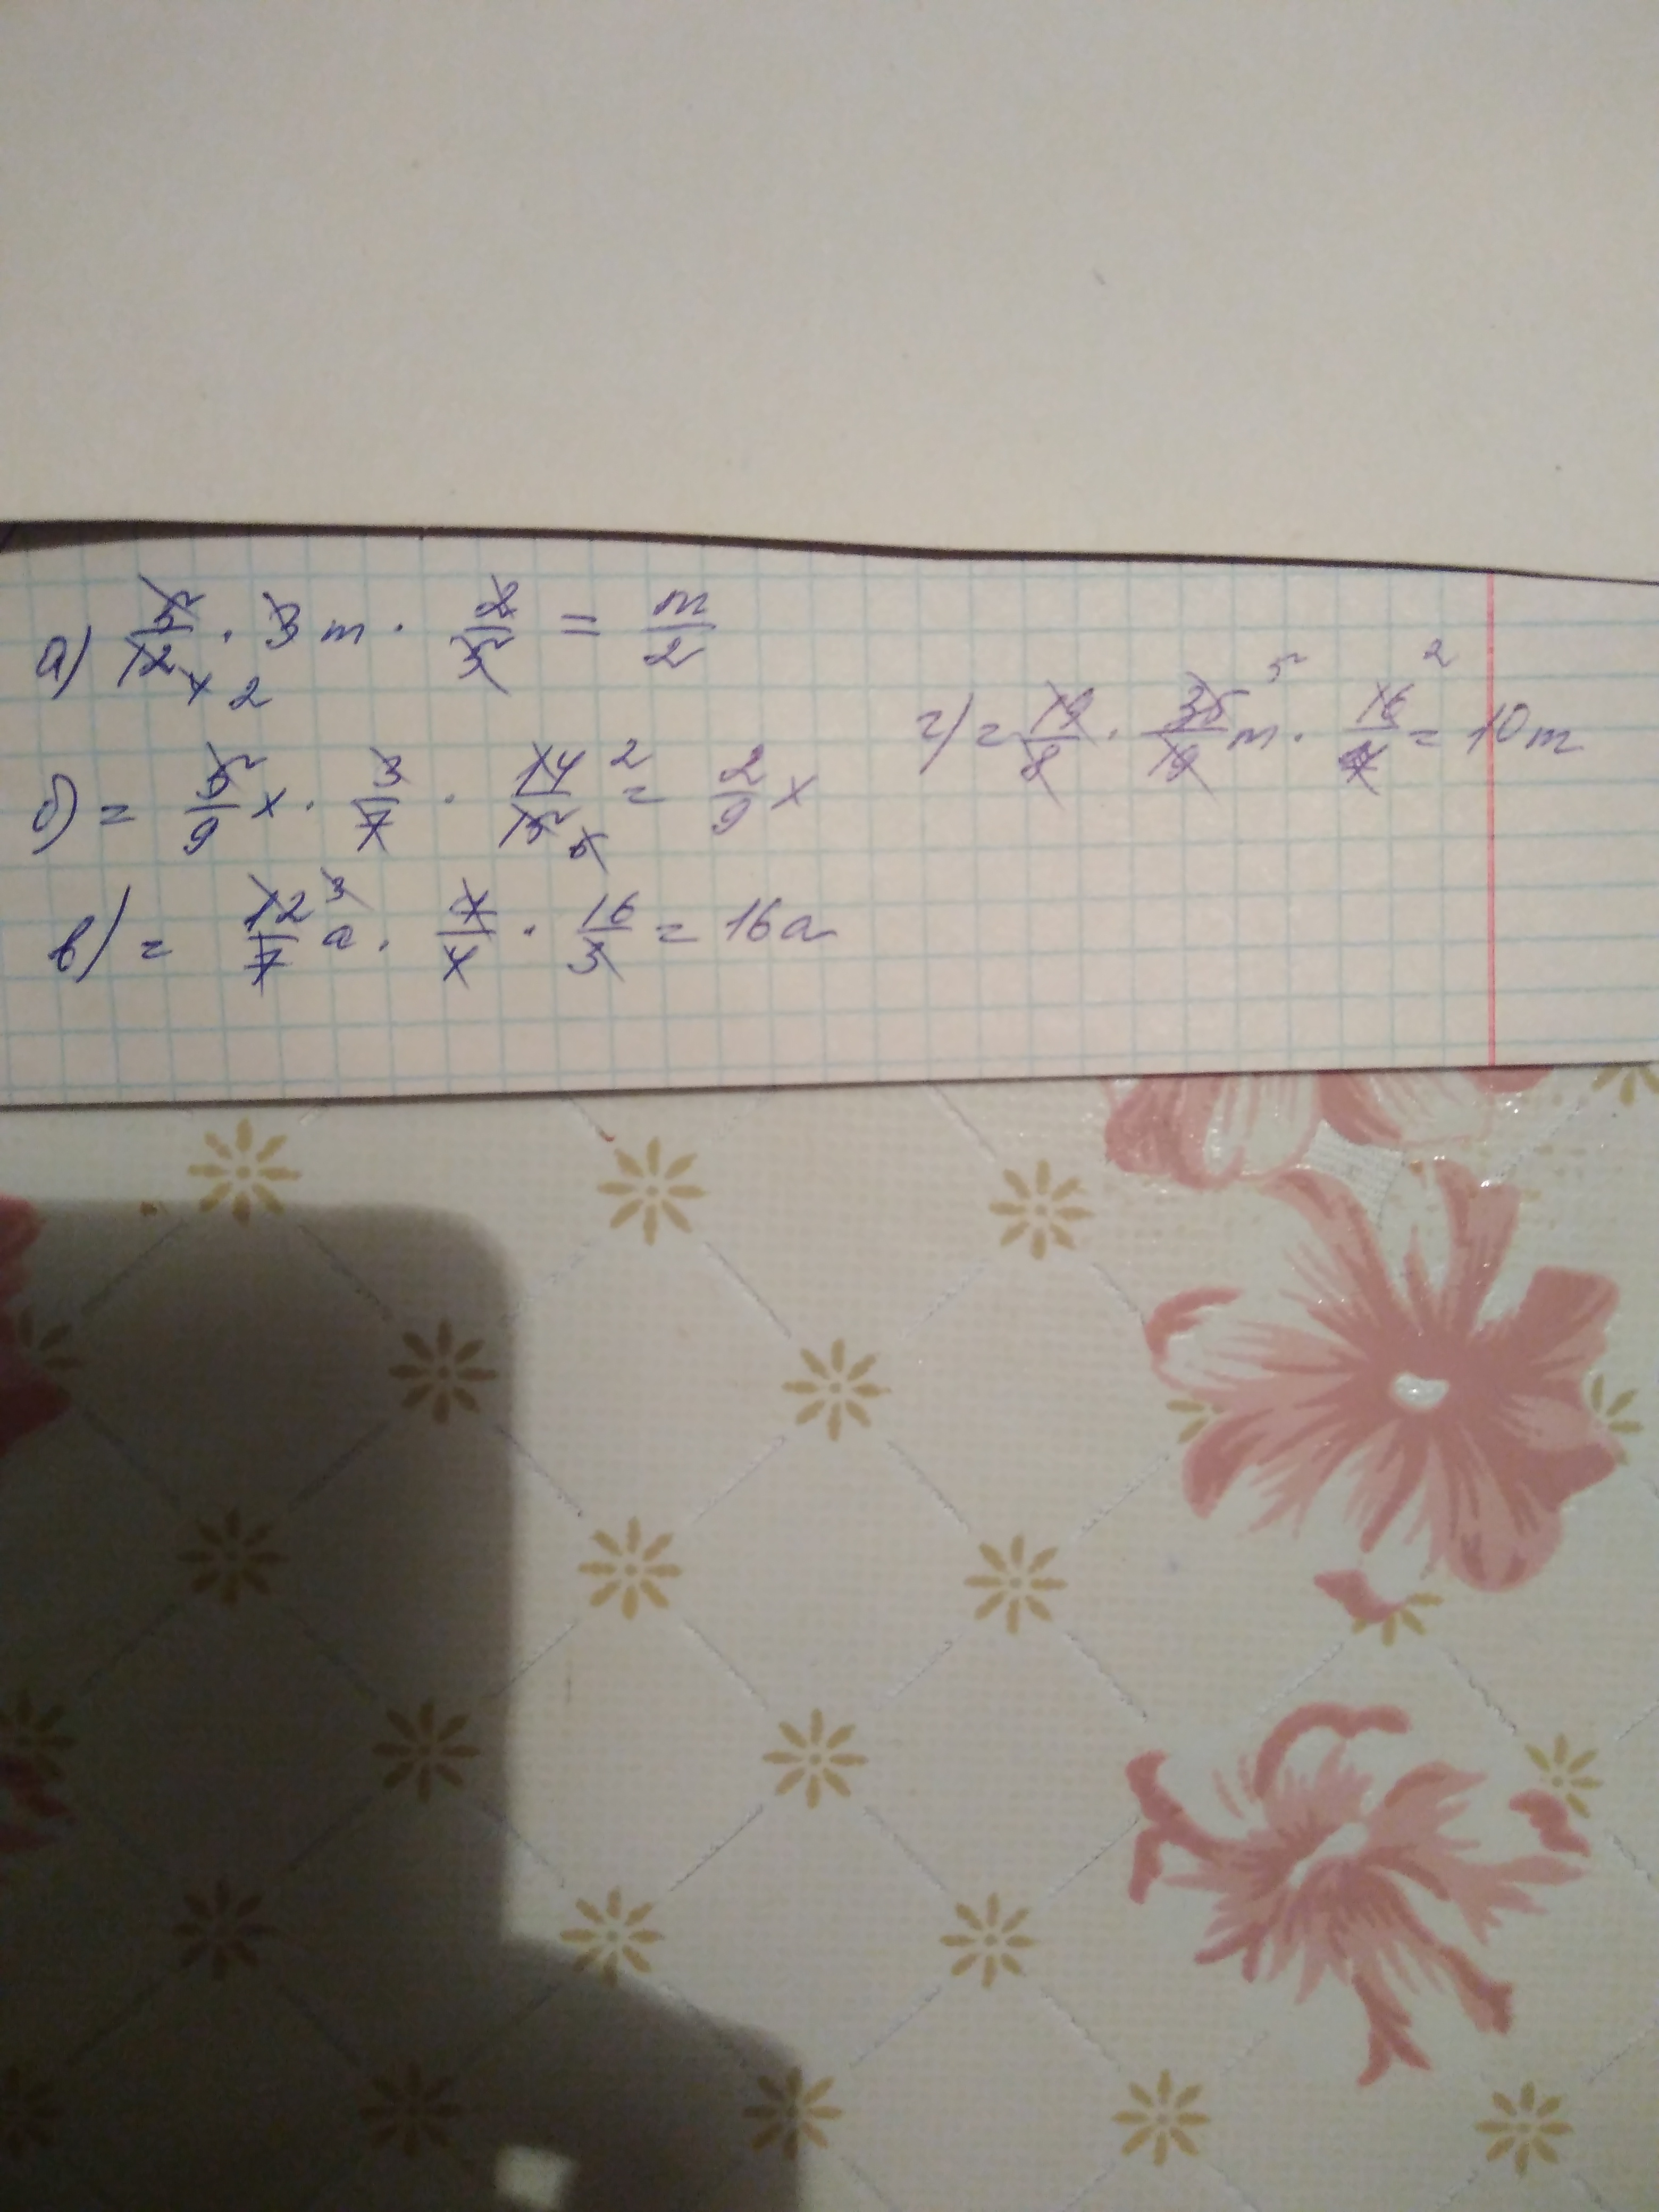 а) 5/12 4 2 · 3m · 2/5 = m/2
б) = 5/9 x · 3/7 · 14/15 2 5 = 2/9 x
в) = 12/7 3 a · 7/4 · 16/3 = 16a
г) = 19/8 · 35/19 5 m · 16/7 2 = 10m